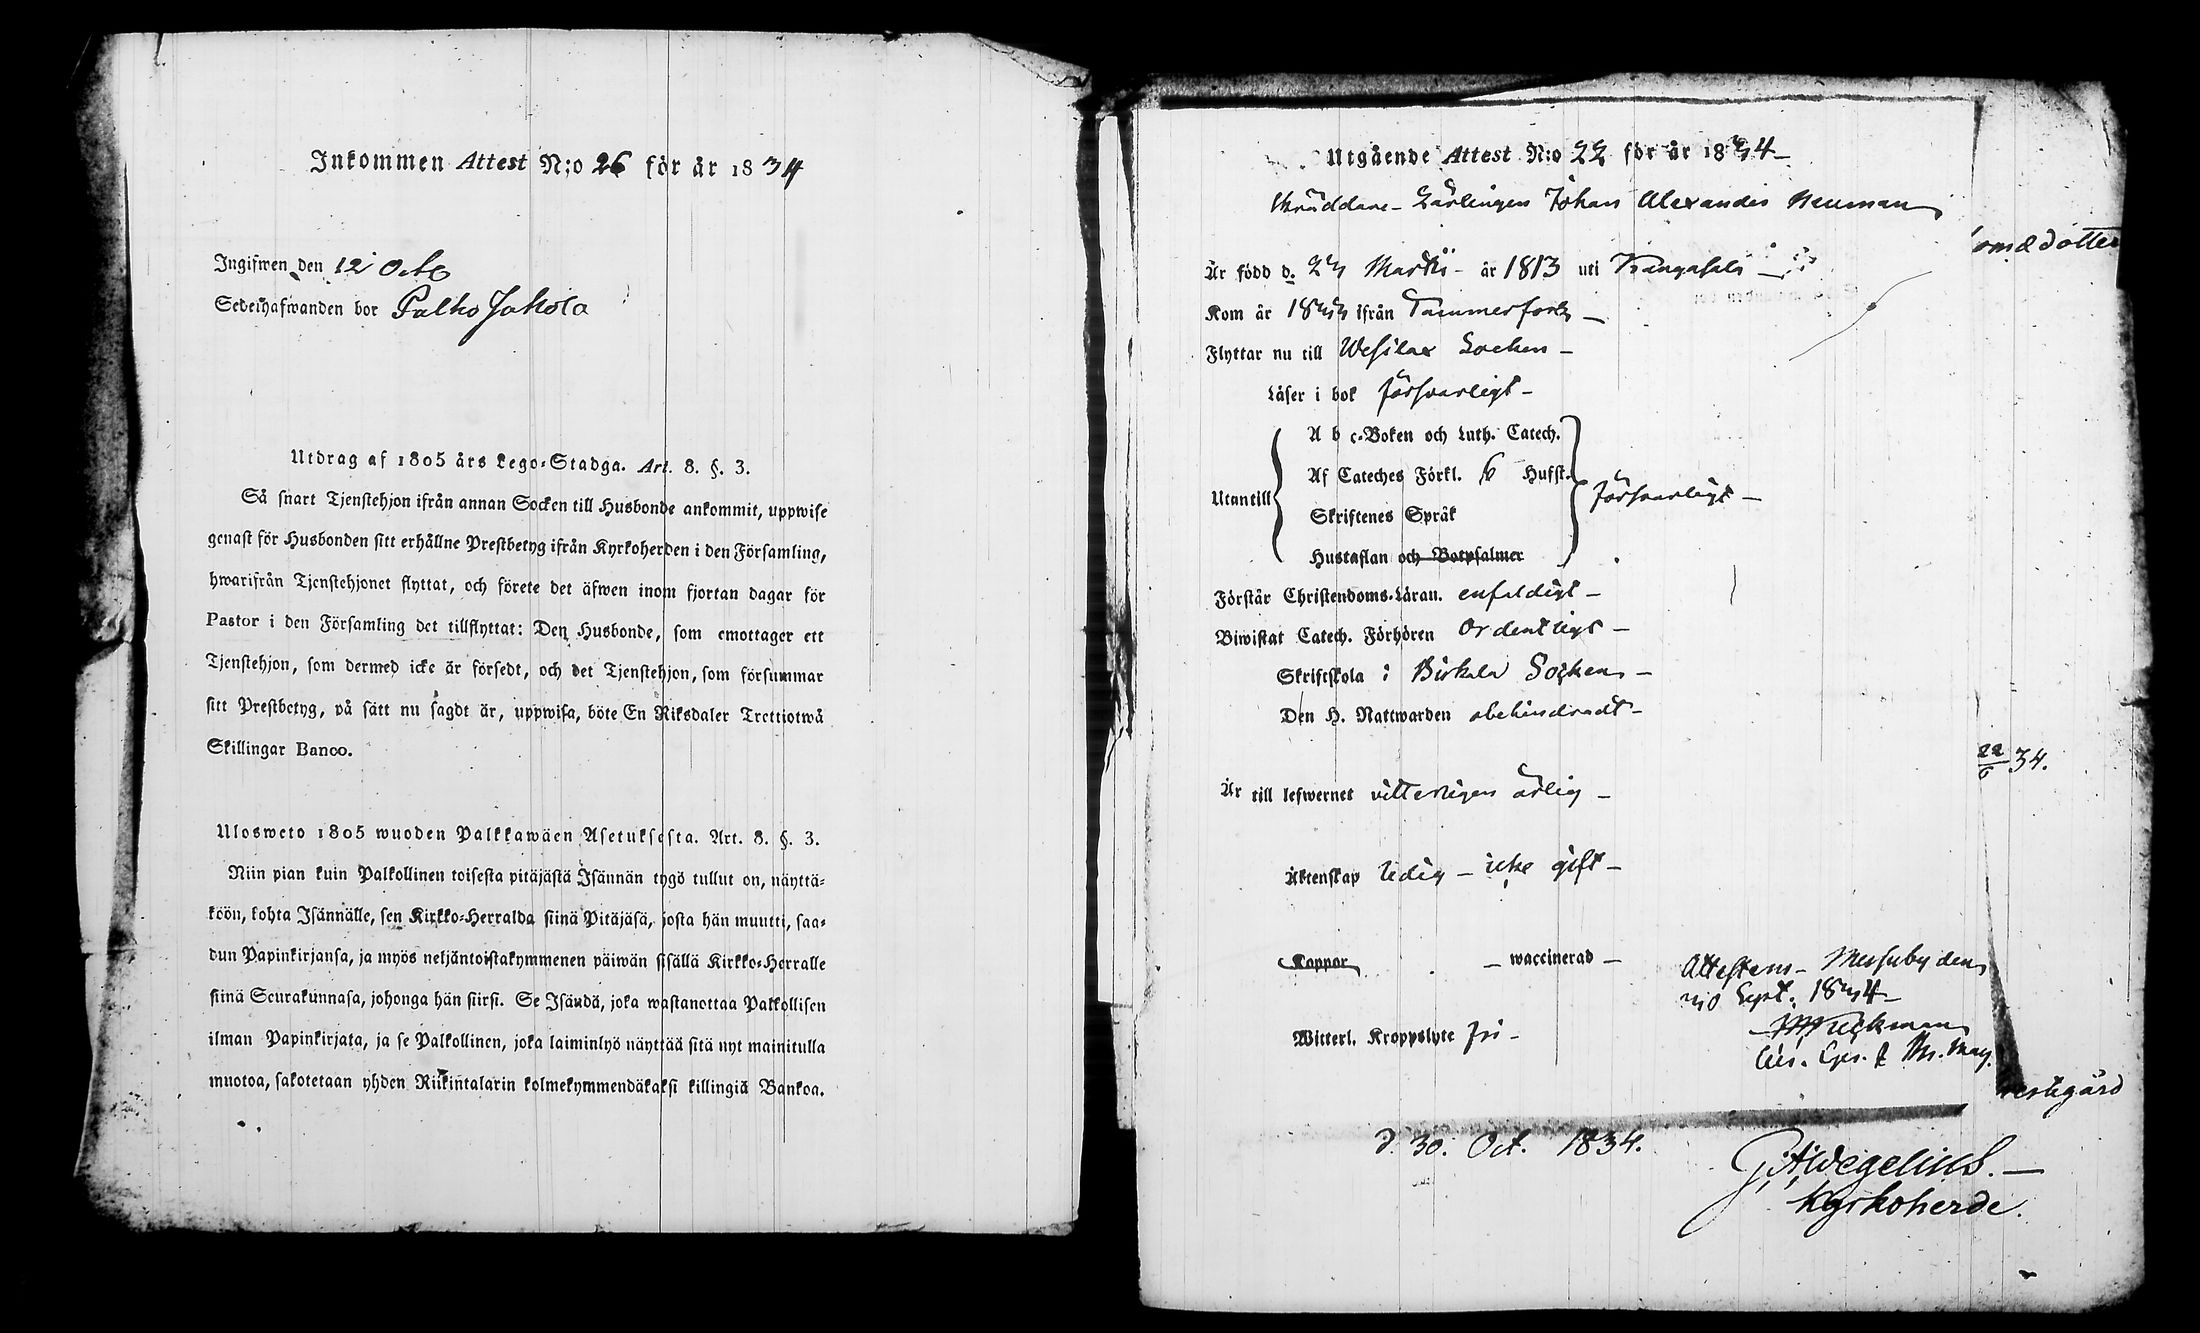 Inkommen Attest N:o 26 för år 1834
Ingifwen den 12 Octb
Sedelhafwanden bor Palho Jakola
Utdrag af 1805 års Lego-Stadga. Art. 8. §. 3.
Så snart Tjenstehjon ifrån annan Socken till Husbonde ankommit, uppwise
genast för Husbonden sitt erhållne Prestbetyg ifrån Kyrkoherden i den Församling,
hwarifrån Tjenstehjonet flyttat, och förete det äfwen inom fjortan dagar för
Pastor i den Församling det tillflyttat: Den Husbonde, som emottager ett
Tjenstehjon, som dermed icke är försedt, och det Tjenstehjon, som försummar
sitt Prestbetyg, på sätt nu sagdt är, uppwisa, böte En Riksdaler Trettiotwå
Skillingar Banco.
Ulosweto 1805 wuoden Palkkawäen Asetuksesta. Art. 8. §. 3.
Niin pian kuin Palkollinen toisesta pitäjästä Isännän tygö tullut on, näyttä-
köön, kohta Isännälle, sen Kirkko-Herralda siinä Pitäjäsä, josta hän muutti, saa-
dun Papinkirjansa, ja myös neljäntoistakymmenen päiwän sisällä Kirkko-Herralle
siinä Seurakunnasa, johonga hän siirsi. Se Isändä, joka wastanottaa Palkollisen
ilman Papinkirjata, ja se Palkollinen, joka laiminlyö näyttää sitä nyt mainitulla
muotoa, sakotetaan yhden Riikintalarin kolmekymmendäkaksi killingiä Bankoa.
Utgående Attest N:o 22 för år 1834
Skräddare-Lärlingen Johan Alexander Neuman
Är född d. 23 Martii år 1813 uti Kangasala
Kom år 1833 ifrån Tammerfors
Flyttar nu till Wesilax Socken
Läser i bok försvarligt
A b c-Boken och Luth. Catech.
Af Cateches Förkl. 6 Hufst.
Utantill försvarligt
Skriftenes Språk
Hustaflan och Botpsalmer
Förstår Christendoms-Läran. enfaldigt
Biwistat Catech. Förhören Ordentligt
Skriftskola i Birkala Socken
Den H. Nattwarden obehindradt
Är till lefwernet vitterligen ärlig
Äktenskap ledig - icke gift
Koppor - waccinerad
Witterl. Kroppslyte fri
Attesteras Messuby den
30 Sept. 1834
omsdotter
22/6 34.
restegård
d. 30. Oct. 1834.
G. A. Wegelius.
Kyrkoherde.